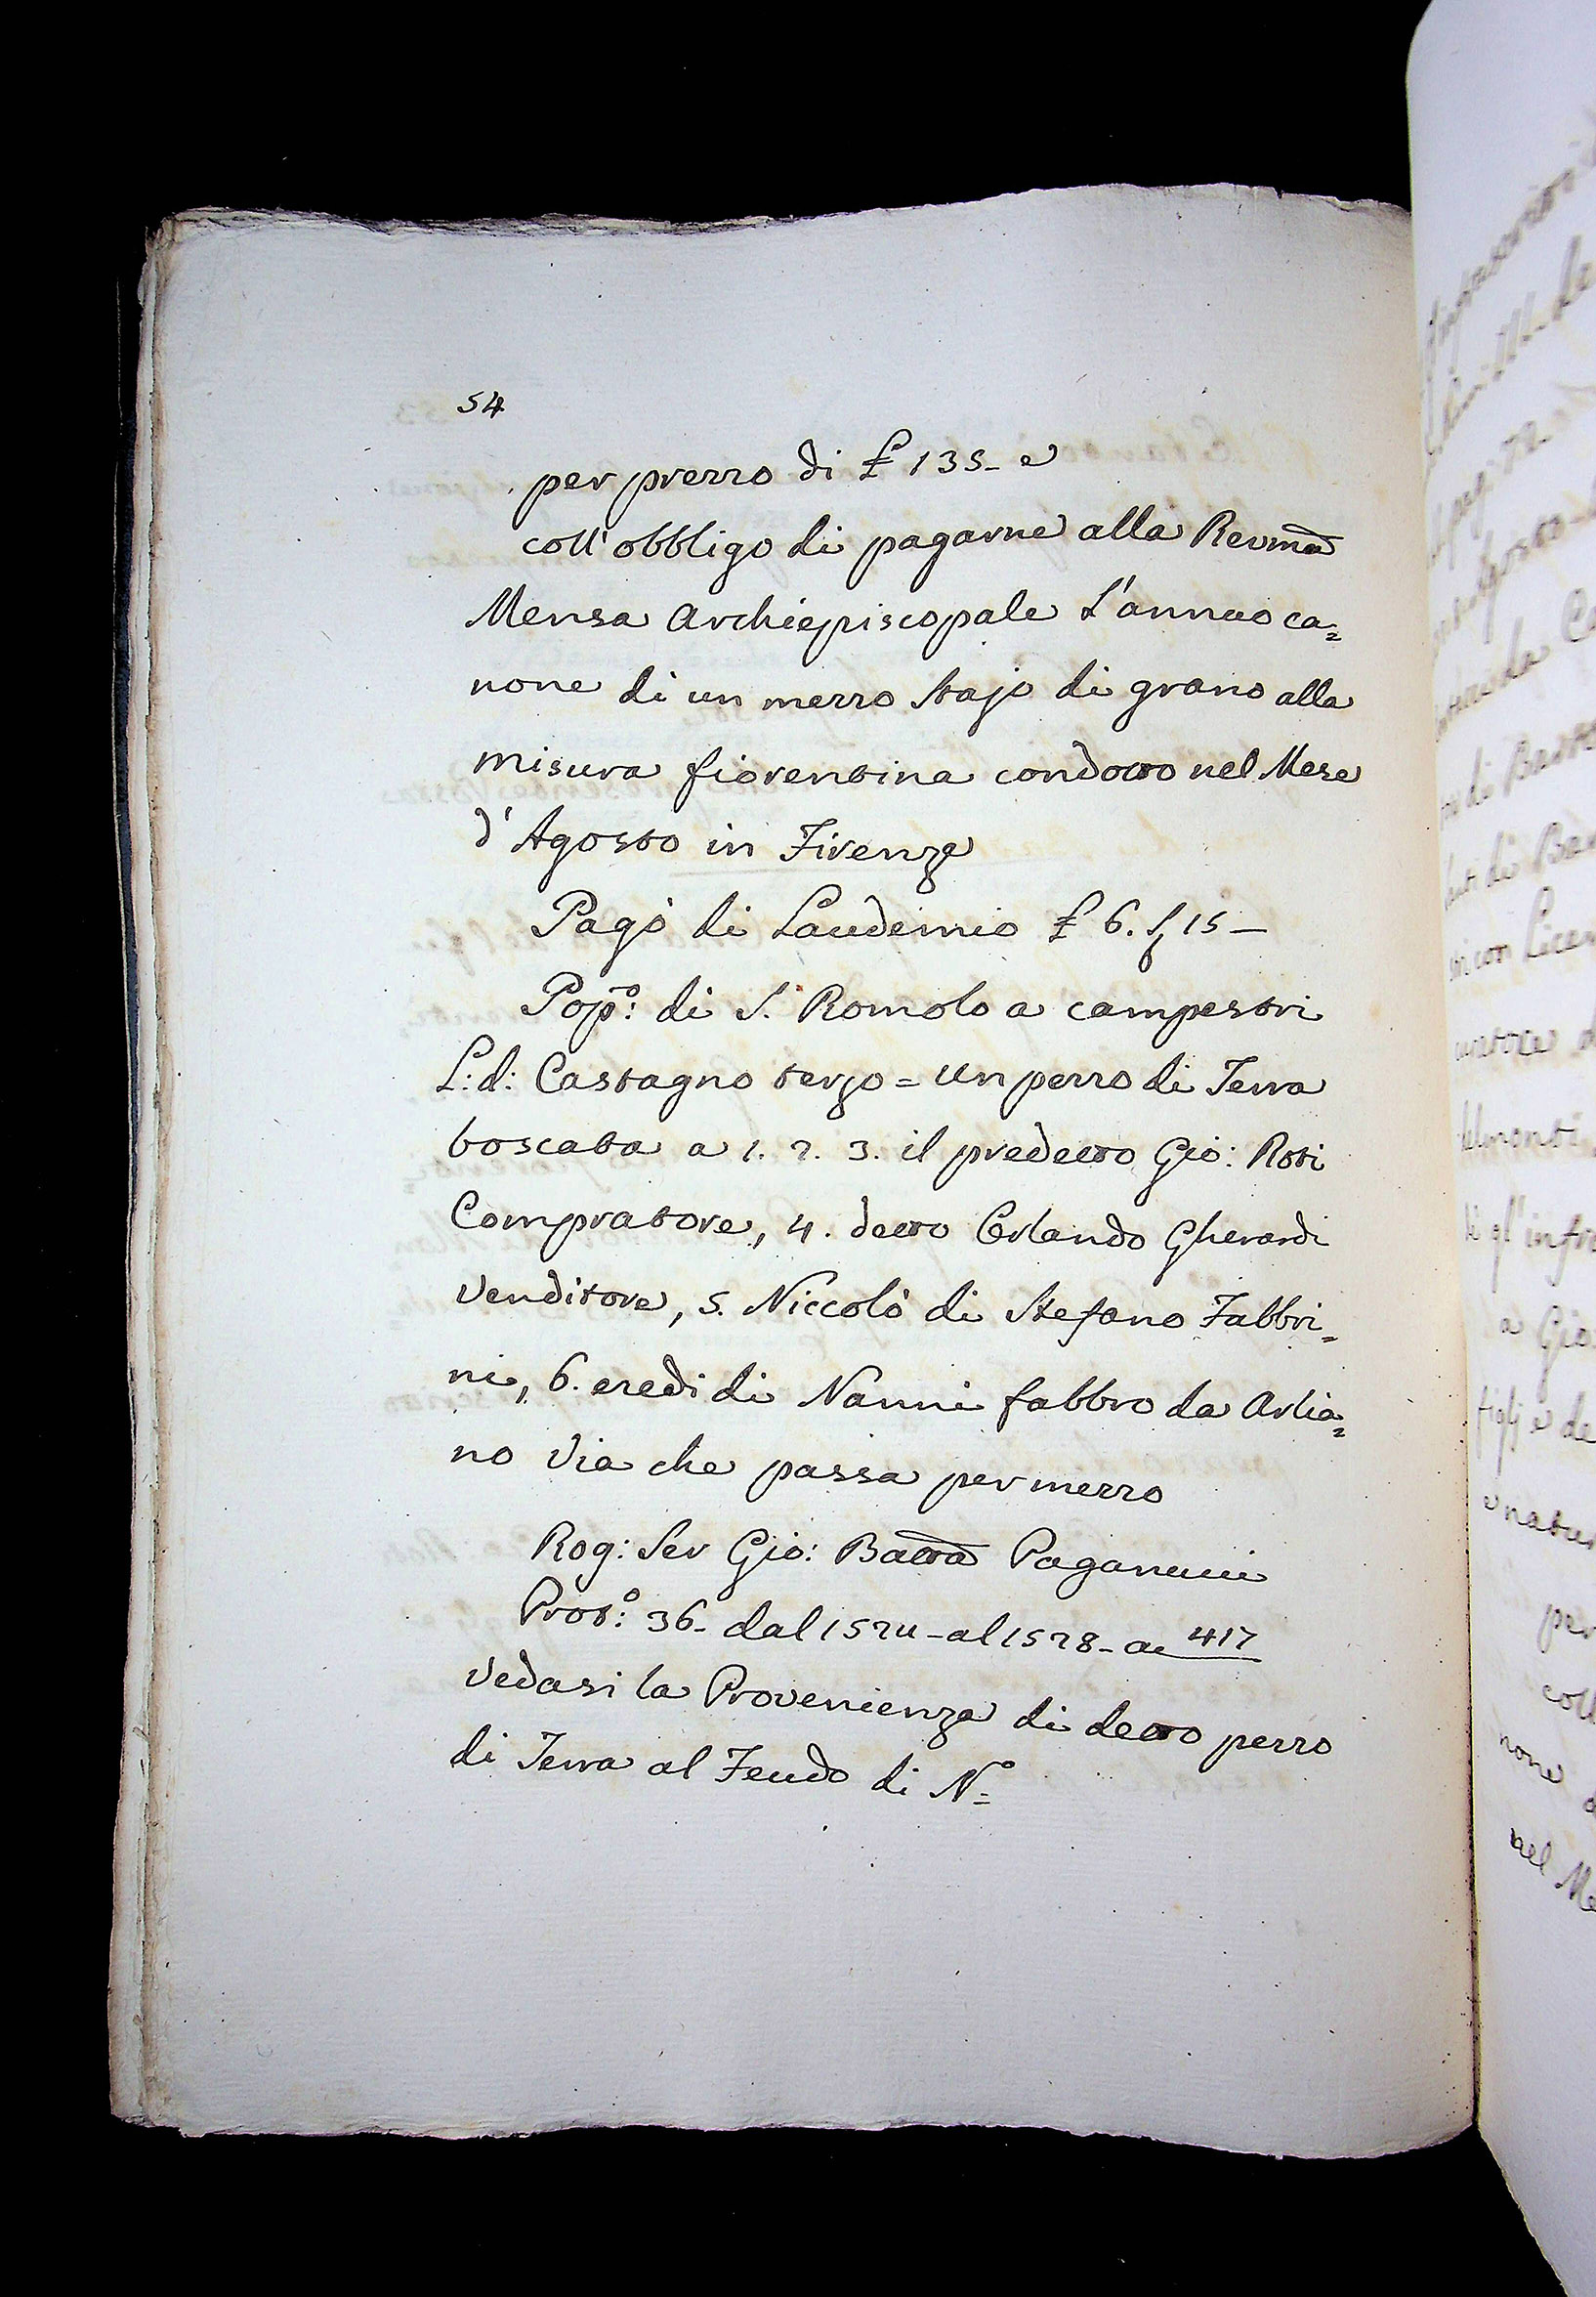 54
per prezzo di £ 135 - e
coll' obbligo di pagarne alla Revma
Mensa Archiepiscopale l'annuo ca=
none di un mezzo stajo di grano alla
misura fiorentina condotto nel Mese
d'Agosto in Firenze
Pagò di Laudemio £ 6. ʃ 15 -
Popo: di S. Romolo a campestri
L: d: Castagno terzo = un pezzo di Terra
boscata a 1. 2. 3. il predetto Gio: Roti
Compratore, 4. detto Orlando Gherardi
Venditore, 5. Niccolò di Stefano Fabbri=
ni, 6. eredi di Nanni fabbro da Arlia=
no Via che passa per mezzo
Rog: Ser Gio: Batta Paganucci
Proto: 36 - dal 1524 - al 1528 - a c 417
Vedasi la Provenienza di detto pezzo
di Terra al Feudo di No=